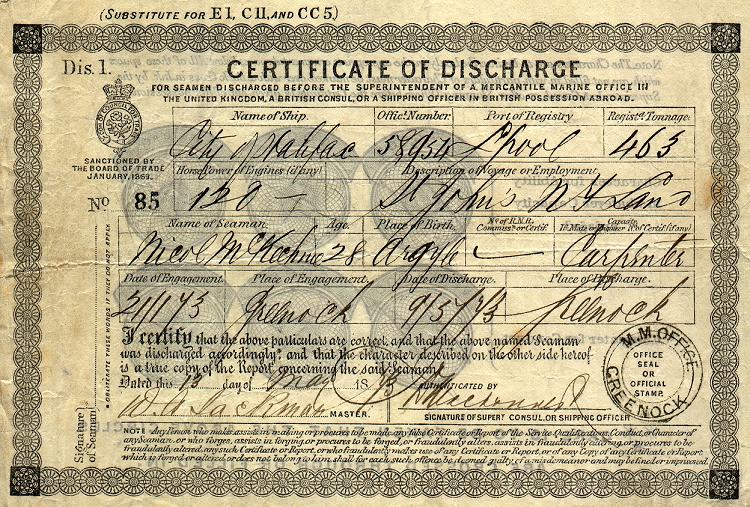 (SUBSTITUTE FOR E1, C11, AND CC5)
Dis. 1.
CERTIFICATE OF DISCHARGE
FOR SEAMEN DISCHARGED BEFORE THE SUPERINTENDENT OF A MERCANTILE MARINE OFFICE IN
THE UNITED KINGDOM, A BRITISH CONSUL, OR A SHIPPING OFFICER IN BRITISH POSSESSION ABROAD.
SANCTIONED BY
THE BOARD OF TRADE
JANUARY, 1869.
No 85
Name of Ship. Offic. Number Port of Registry Regist. Tonnage.
City of Halifax 58954 Lpool 463
Horse Power of Engines (if any) Description of Voyage or Employment.
120 St John's N. F. Land
Name of Seaman. Age. Place of Birth. No. of R.N.R. Commissn or Certif. Capacity. If Mate or Engineer No. of Certif. (if any)
Nicol McKechnie 28 Argyle Carpenter
Date of Engagement. Place of Engagement. Date of Discharge. Place of Discharge.
Greenock 9/5/73 Greenock
I certify that the above particulars are correct, and that the above named Seaman
was discharged accordingly, and that the character described on the other side hereof
is a true copy of the Report concerning the said Seaman.
Dated this 13 day of May 1873 AUTHENTICATED BY
MASTER.
SIGNATURE OF SUPERT CONSUL, OR SHIPPING OFFICER
M.M. OFFICE
OFFICE
SEAL
OR
OFFICIAL
STAMP.
GREENOCK
Signature
of Seaman
* OBLITERATE THESE WORDS IF THEY DO NOT APPLY
NOTE Any Person who makes, assists in making or procures to be made, any false Certificate or Report of the Service, Qualifications, Conduct, or Character of
any Seaman, or who forges, assists in forging, or procures to be forged, or fraudulently alters, assists in fraudulently altering, or procures to be
fraudulently altered, any such Certificate or Report, or who fraudulently makes use of any Certificate or Report, or of any Copy of any Certificate or Report,
which is forged or altered, or does not belong to him, shall for each such offence be deemed guilty of a misdemeanor and may be fined or imprisoned.